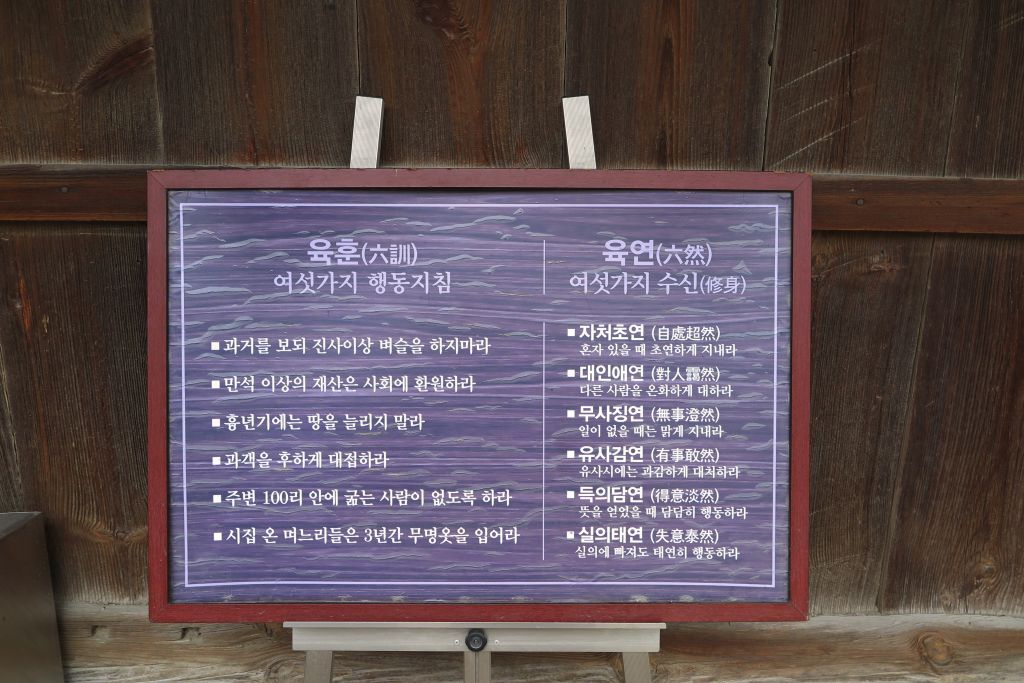 육훈(六訓)
여섯가지 행동지침
■ 과거를 보되 진사이상 벼슬을 하지마라
■ 만석 이상의 재산은 사회에 환원하라
■ 흉년기에는 땅을 늘리지 말라
■ 과객을 후하게 대접하라
■ 주변 100리 안에 굶는 사람이 없도록 하라
■ 시집 온 며느리들은 3년간 무명옷을 입어라
육연(六然)
여섯가지 수신(修身)
■ 자처초연 (自處超然)
혼자 있을 때 초연하게 지내라
■ 대인애연 (對人靄然)
다른 사람을 온화하게 대하라
■ 무사징연 (無事澄然)
일이 없을 때는 맑게 지내라
■ 유사감연 (有事敢然)
유사시에는 과감하게 대처하라
■ 득의담연 (得意淡然)
뜻을 얻었을 때 담담히 행동하라
■ 실의태연 (失意泰然)
실의에 빠져도 태연히 행동하라